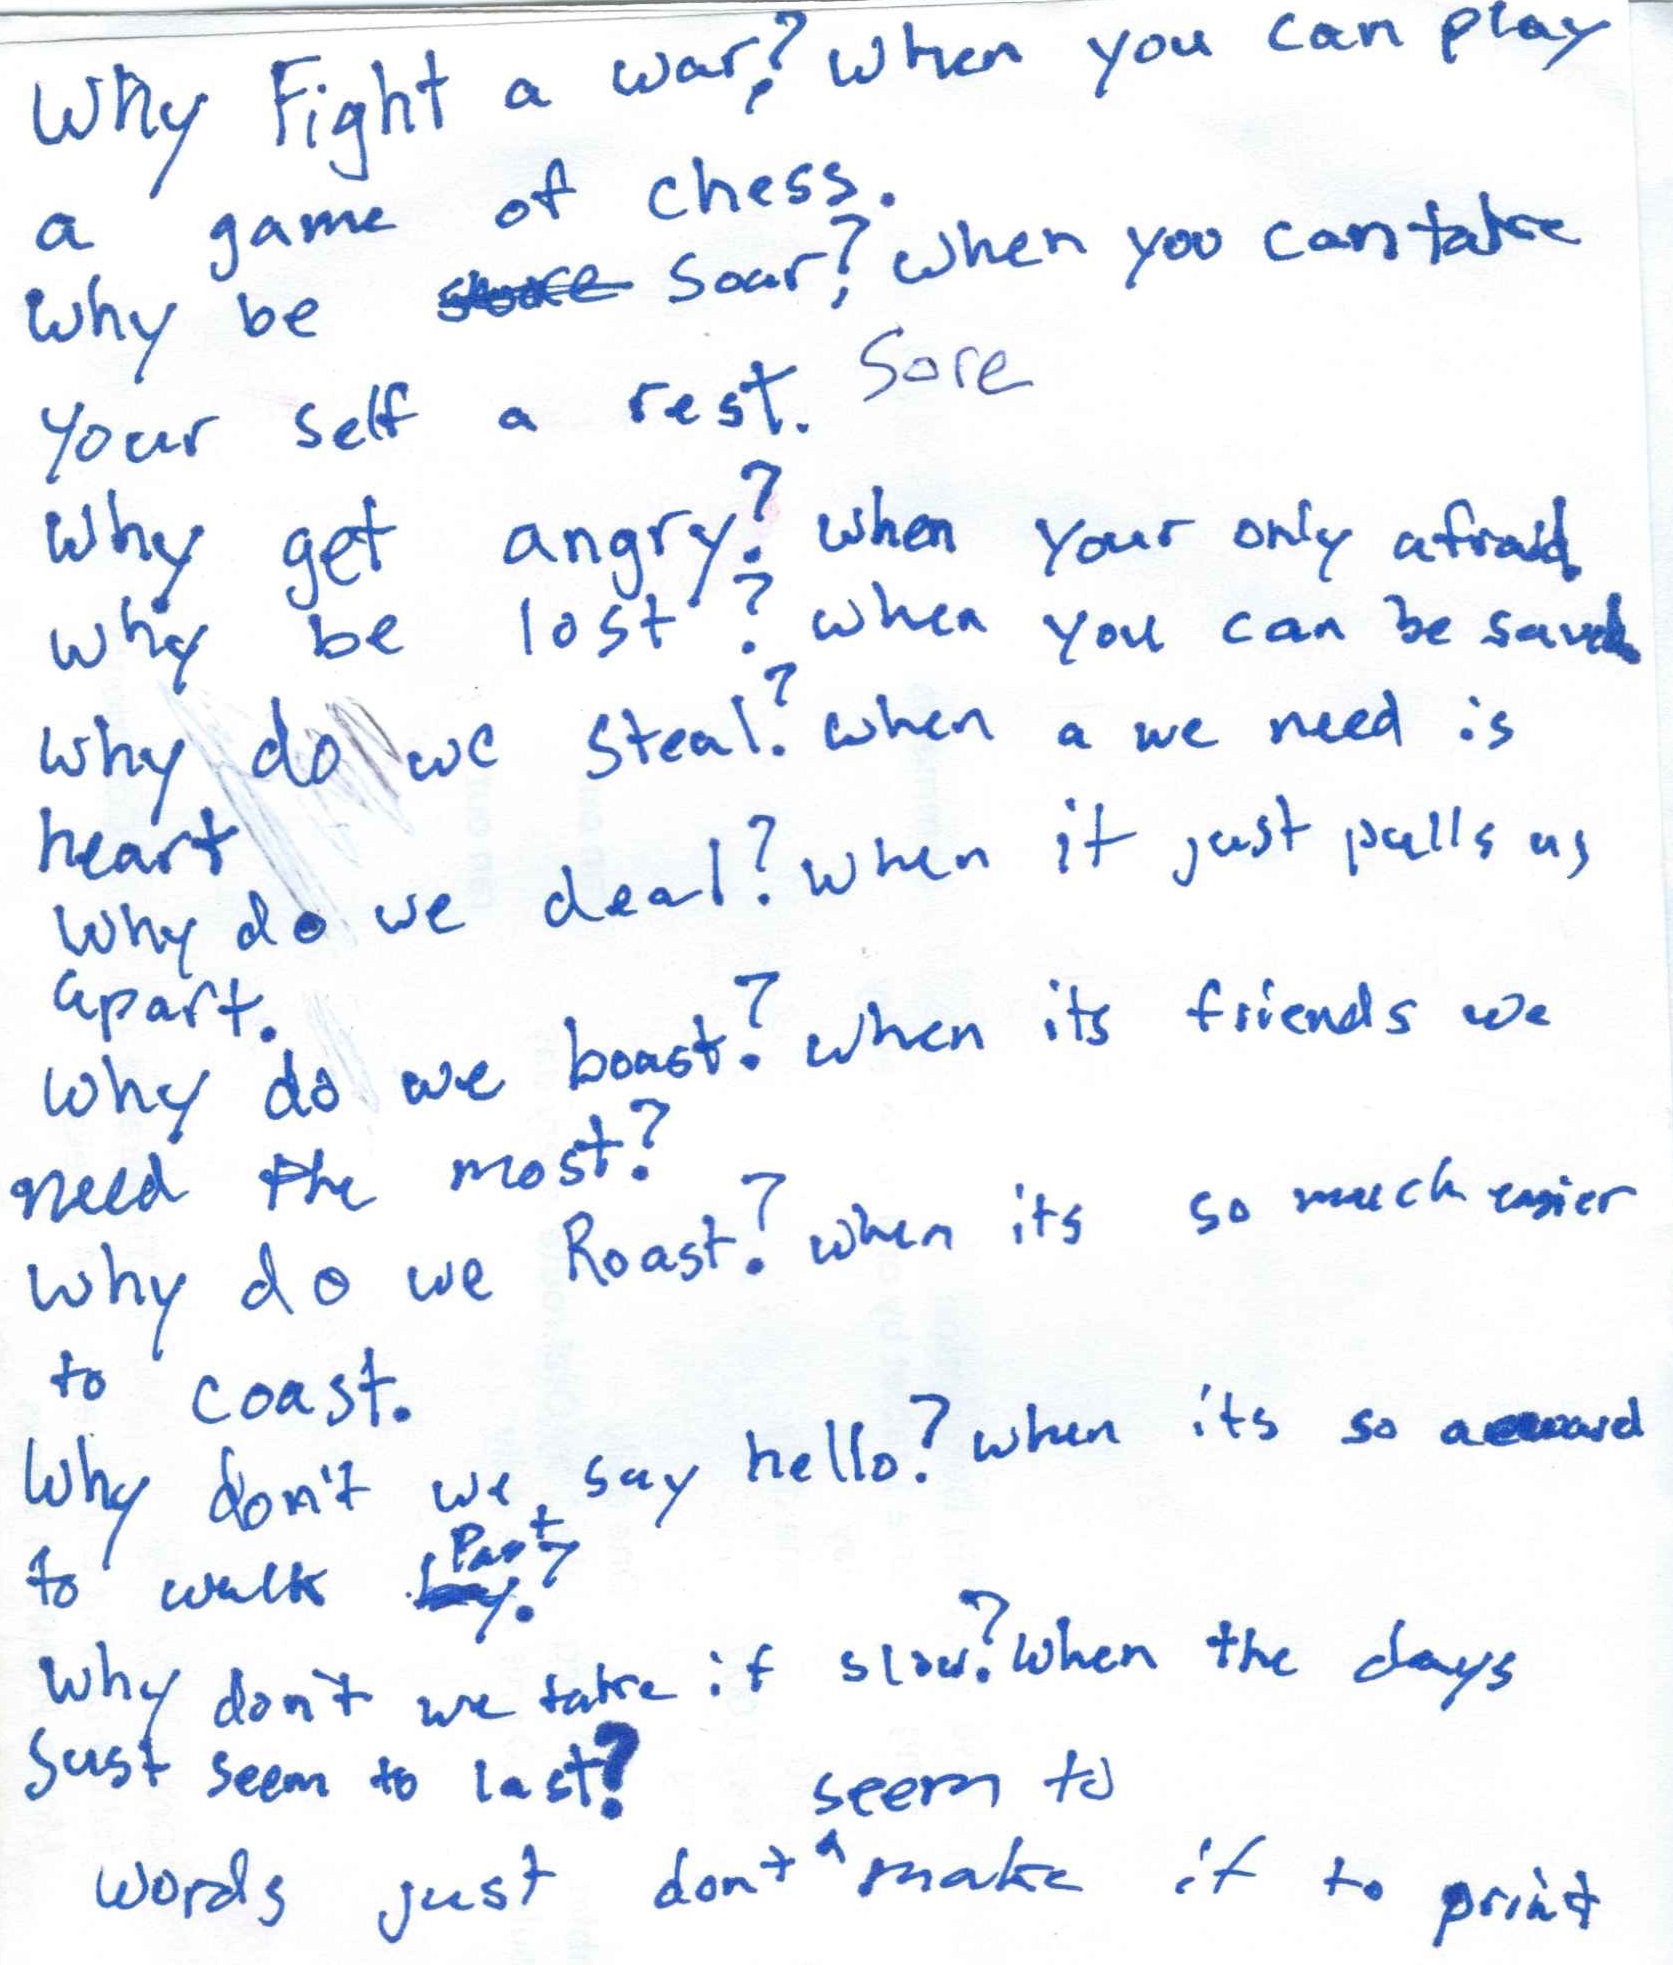 Why Fight a war? When you can play
a game of chess.
Why be soar? When you can take
your self a rest. Sore
Why get angry? when your only afraid.
Why be lost? when you can be saved
Why do we steal? when a we need is
heart
Why do we deal? When it just pulls us
apart.
Why do we boast? when its friends we
need the most?
Why do we Roast? when its so much easier
to coast.
Why don't we say hello? when its so
to walk Past?
Why don't we take it slow? When the days
Just seem to last?
seem to
words just don't make it to print